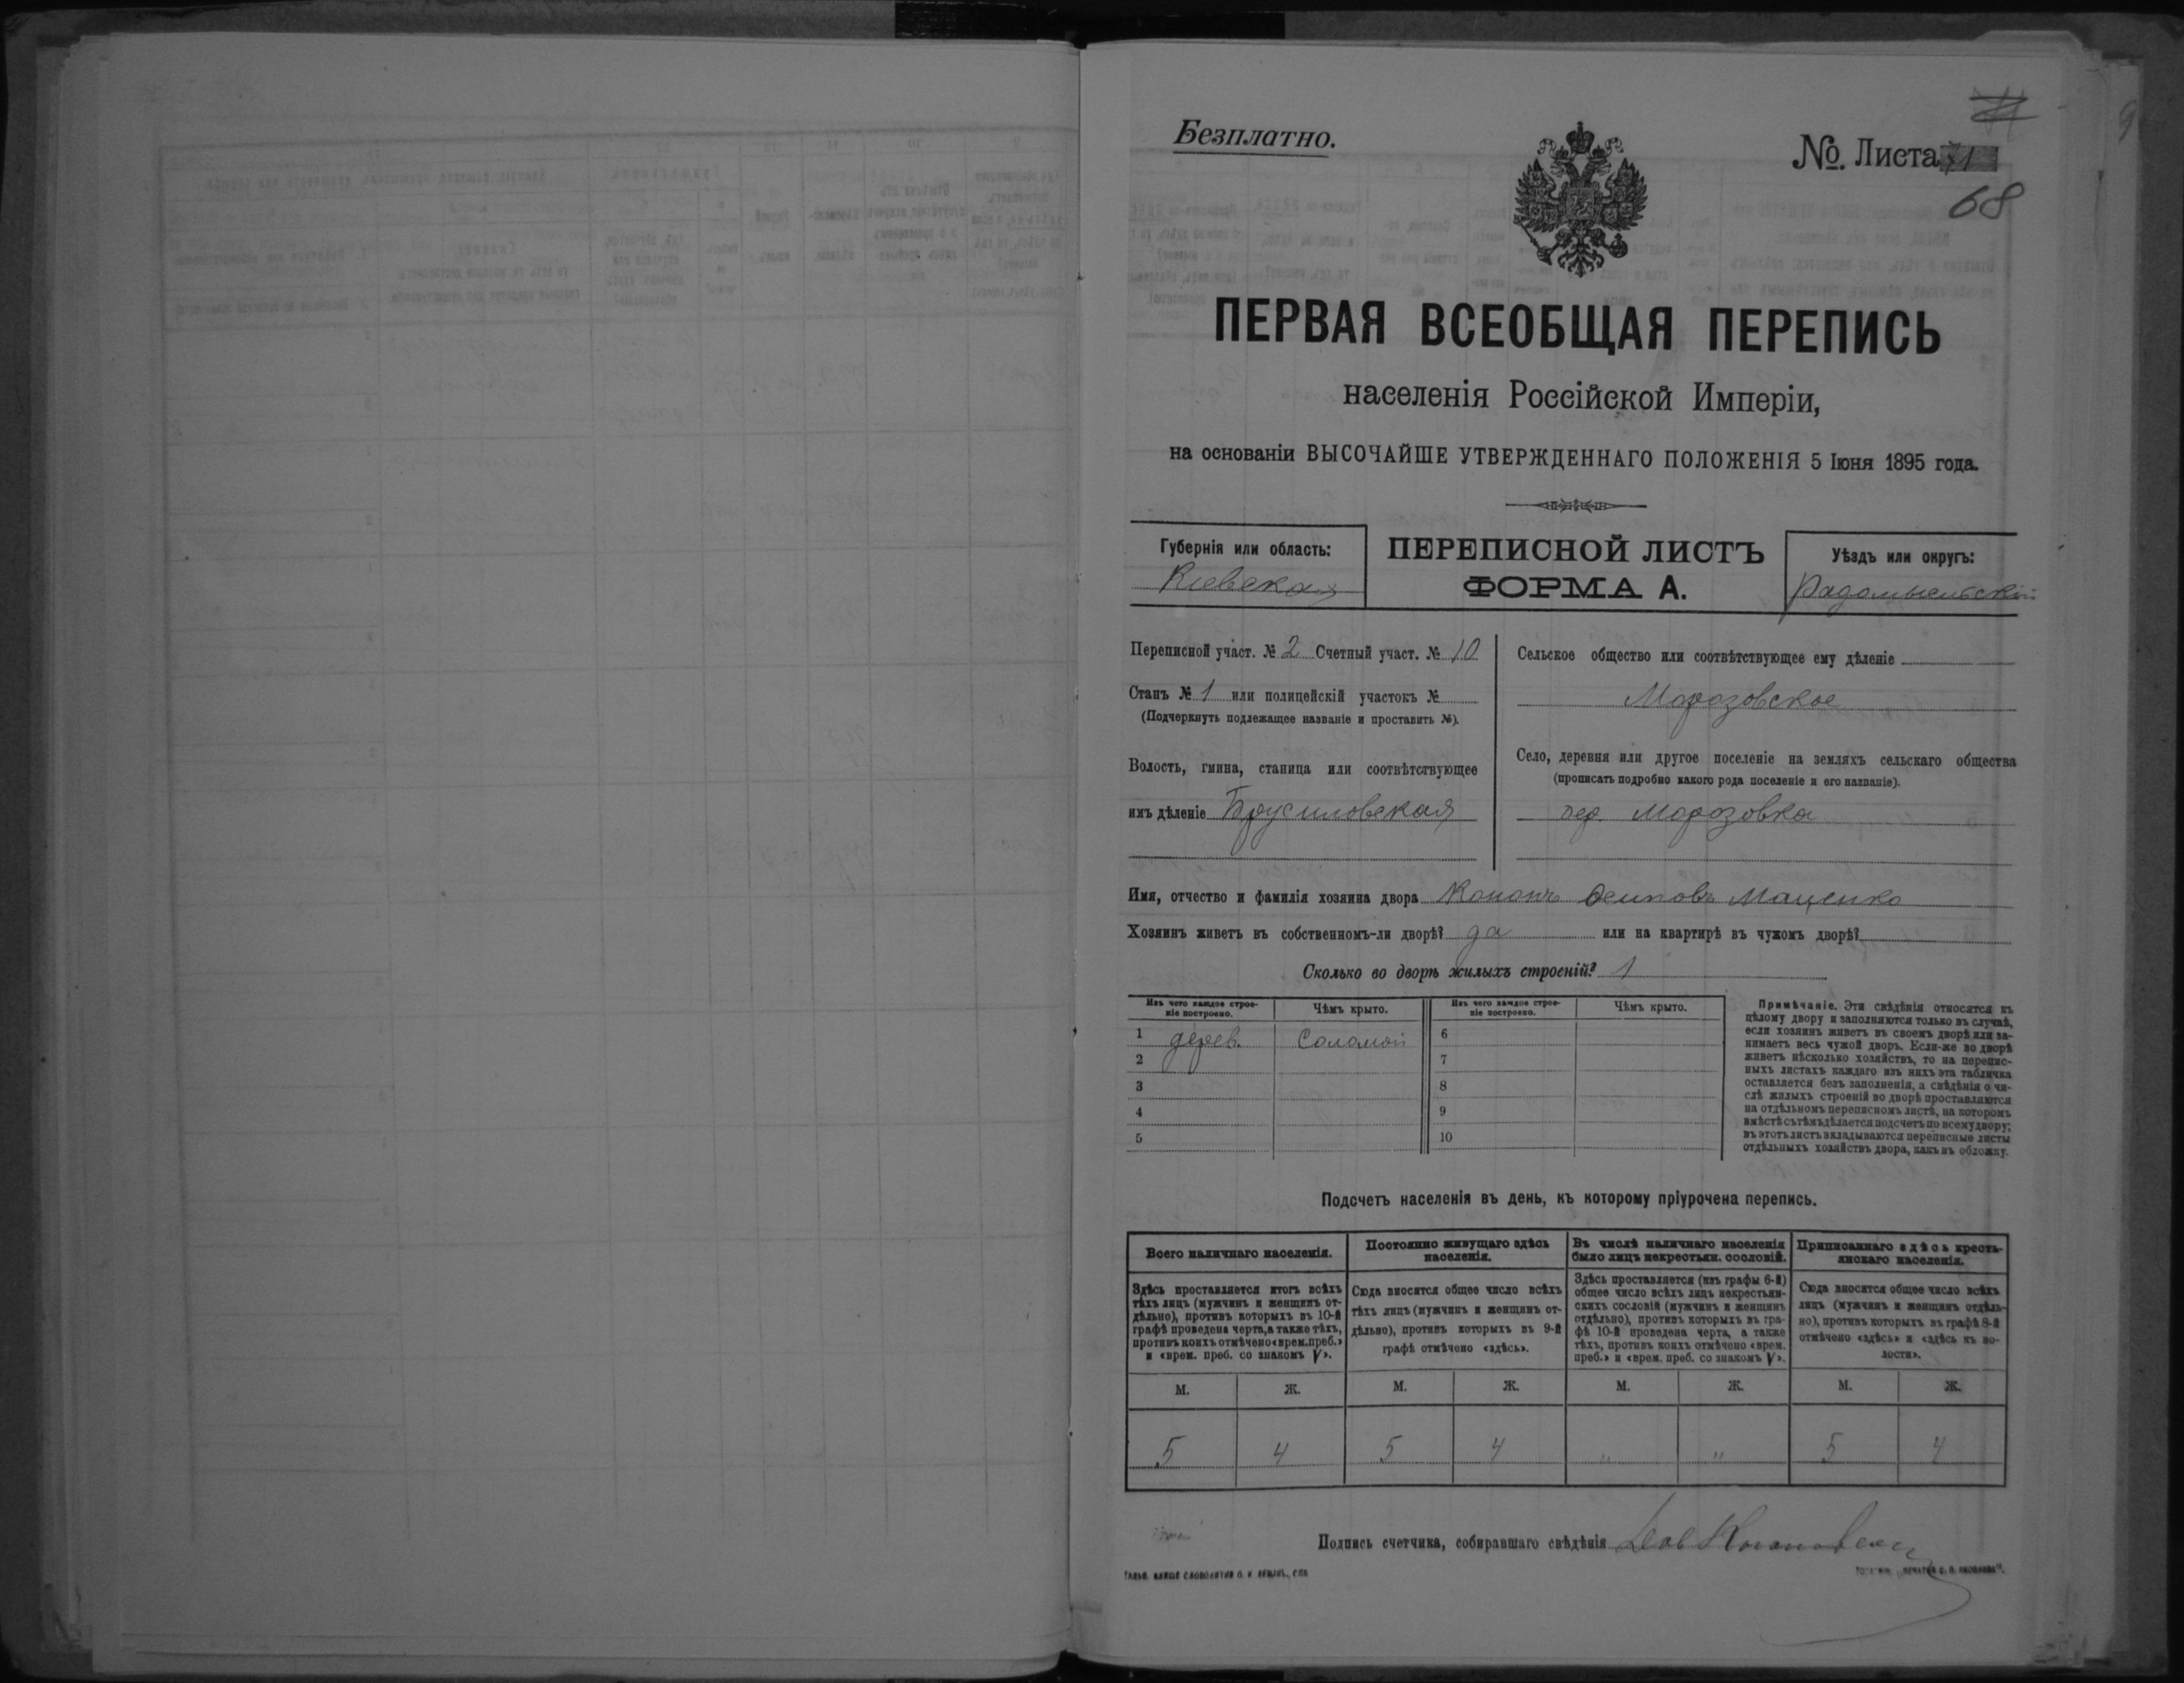 Безплатно.
№. Листа 71
68
ПЕРВАЯ ВСЕОБЩАЯ ПЕРЕПИСЬ
населенія Россійской Имперіи,
на основаніи ВЫСОЧАЙШЕ УТВЕРЖДЕННАГО ПОЛОЖЕНІЯ 5 Іюня 1895 года.
Губернія или область:
Кіевская
ПЕРЕПИСНОЙ ЛИСТЪ
ФОРМА А.
Уѣздъ или округъ:
Радомысльскій
Переписной участ. № 2 Счетный участ. № 10
Станъ № 1 или полицейскій участокъ №
(Подчеркнуть подлежащее названіе и проставить №).
Волость, гмина, станица или соотвѣтствующее
имъ дѣленіе Брусиловская
Сельское общество или соотвѣтствующее ему дѣленіе
Морозовское
Село, деревня или другое поселеніе на земляхъ сельскаго общества
(прописать подробно какого рода поселеніе и его названіе).
дер. Морозовка
Имя, отчество и фамилія хозяина двора Кононъ Осиповъ Маценко
Хозяинъ живетъ въ собственномъ-ли дворѣ? да или на квартирѣ въ чужомъ дворѣ?
Сколько во дворѣ жилыхъ строеній? 1
Изъ чего каждое строе-
ніе построено.
Чѣмъ крыто.
Изъ чего каждое строе-
ніе построено.
Чѣмъ крыто.
1 дерев. Соломой 6
2 7
3 8
4 9
5 10
Примѣчаніе. Эти свѣдѣнія относятся къ
цѣлому двору и заполняются только въ случаѣ,
если хозяинъ живетъ въ своемъ дворѣ или за-
нимаетъ весь чужой дворъ. Если-же во дворѣ
живетъ нѣсколько хозяйствъ, то на перепис-
ныхъ листахъ каждаго изъ нихъ эта табличка
оставляется безъ заполненія, а свѣдѣнія о чи-
слѣ жилыхъ строеній во дворѣ проставляются
на отдѣльномъ переписномъ листѣ, на которомъ
вмѣстѣ съ тѣмъ дѣлается подсчетъ по всему двору;
въ этотъ листъ вкладываются переписные листы
отдѣльныхъ хозяйствъ двора, какъ въ обложку.
Подсчетъ населенія въ день, къ которому пріурочена перепись.
Всего наличнаго населенія.
Постоянно живущаго здѣсь
населенія.
Въ числѣ наличнаго населенія
было лицъ некрестьян. сословій.
Приписаннаго здѣсь кресть-
янскаго населенія.
Здѣсь проставляется итогъ всѣхъ
тѣхъ лицъ (мужчинъ и женщинъ от-
дѣльно), противъ которыхъ въ 10-й
графѣ проведена черта, а также тѣхъ,
противъ коихъ отмѣчено «врем. преб.»
и «врем. преб. со знакомъ V».
Сюда вносится общее число всѣхъ
тѣхъ лицъ (мужчинъ и женщинъ от-
дѣльно), противъ которыхъ въ 9-й
графѣ отмѣчено «здѣсь».
Здѣсь проставляется (изъ графы 6-й)
общее число всѣхъ лицъ некрестьян-
скихъ сословій (мужчинъ и женщинъ
отдѣльно), противъ которыхъ въ гра-
фѣ 10-й проведена черта, а также
тѣхъ, противъ коихъ отмѣчено «врем.
преб.» и «врем. преб. со знакомъ V».
Сюда вносится общее число всѣхъ
лицъ (мужчинъ и женщинъ отдѣль-
но), противъ которыхъ въ графѣ 8-й
отмѣчено «здѣсь» и «здѣсь къ во-
лости».
М. Ж. М. Ж. М. Ж. М. Ж.
5 4 5 4 " " 5 4
Подпись счетчика, собиравшаго свѣдѣнія